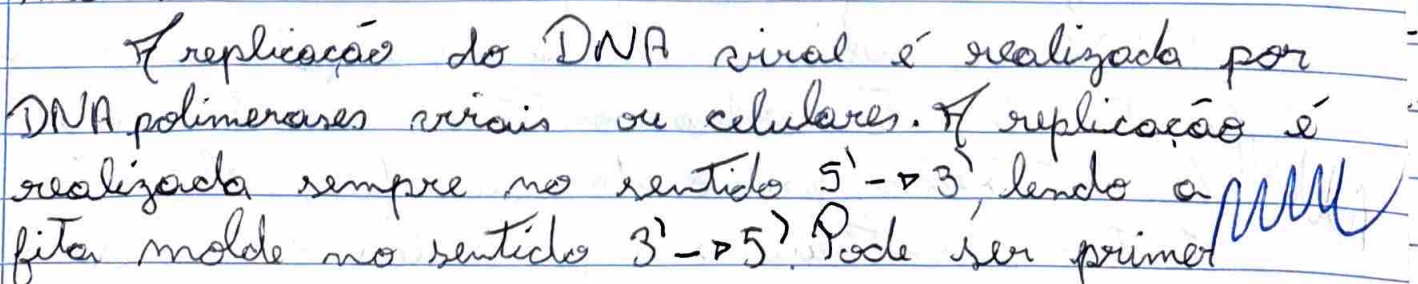 A replicação do DNA viral é realizada por
DNA polimerases virais ou celulares. A replicação é
realizada sempre no sentido 5' → 3', lendo a
fita molde no sentido 3' → 5'. Pode ser primer